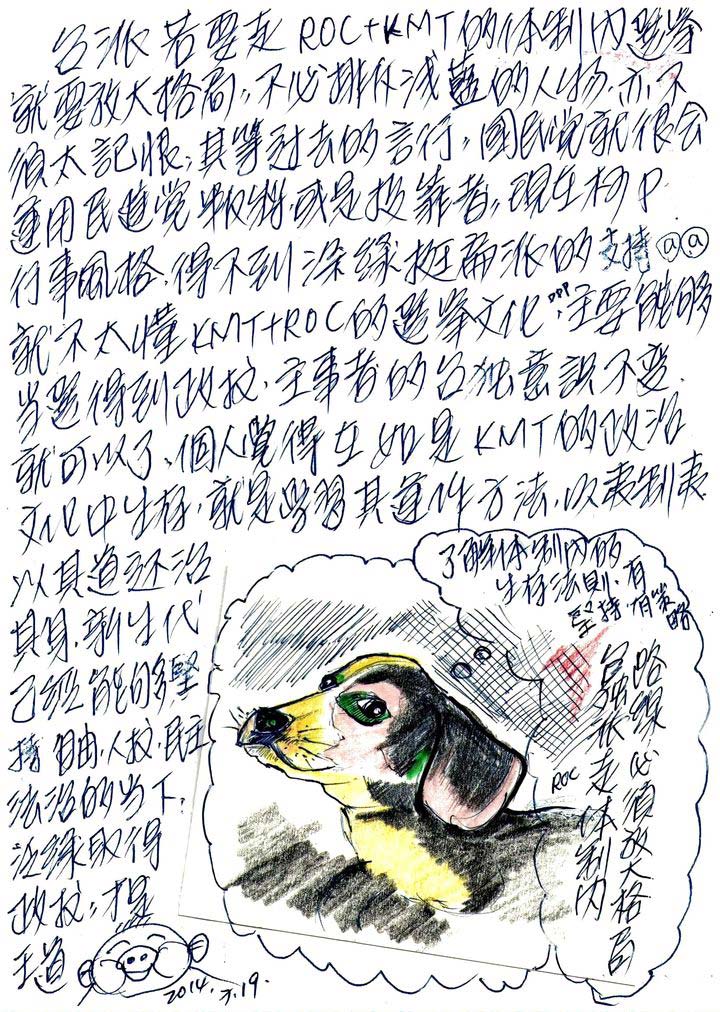 台派若要走ROC+KMT的体制內選舉
就要放大格局,不必排斥浅藍的人物.亦不
須太記恨,其等过去的言行,國民党就很会
運用民進党叛將或是投靠者,現在柯P
行事風格,得不到深綠挺扁派的支持ⓐⓐ
就不太懂KMT+ROC的選舉文化,主要DPP能夠
当選得到政权.主事者的台独意識不变.
就可以了,個人覺得在如是KMT的政治
文化中生存,就是学習其運作方法,以夷制夷
以其道还治
其身.新生代
已經能夠堅
持自由.人权.民主
法治的当下.
泛綠取得
政权,才是
王道
2014.7.19.
了解体制內的
生存法則.有
堅持.有策略
台独派走ROC体制內
路線必須放大格局